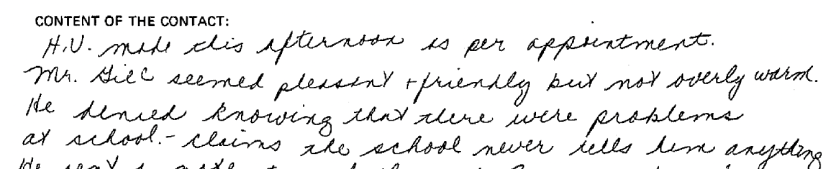 CONTENT OF THE CONTACT:
H.V. made this afternoon as per appointment.
Mr. Gill seemed pleasant + friendly but not overly warm.
He denied knowing that there were problems
at school. - claims the school never tells him anything
He